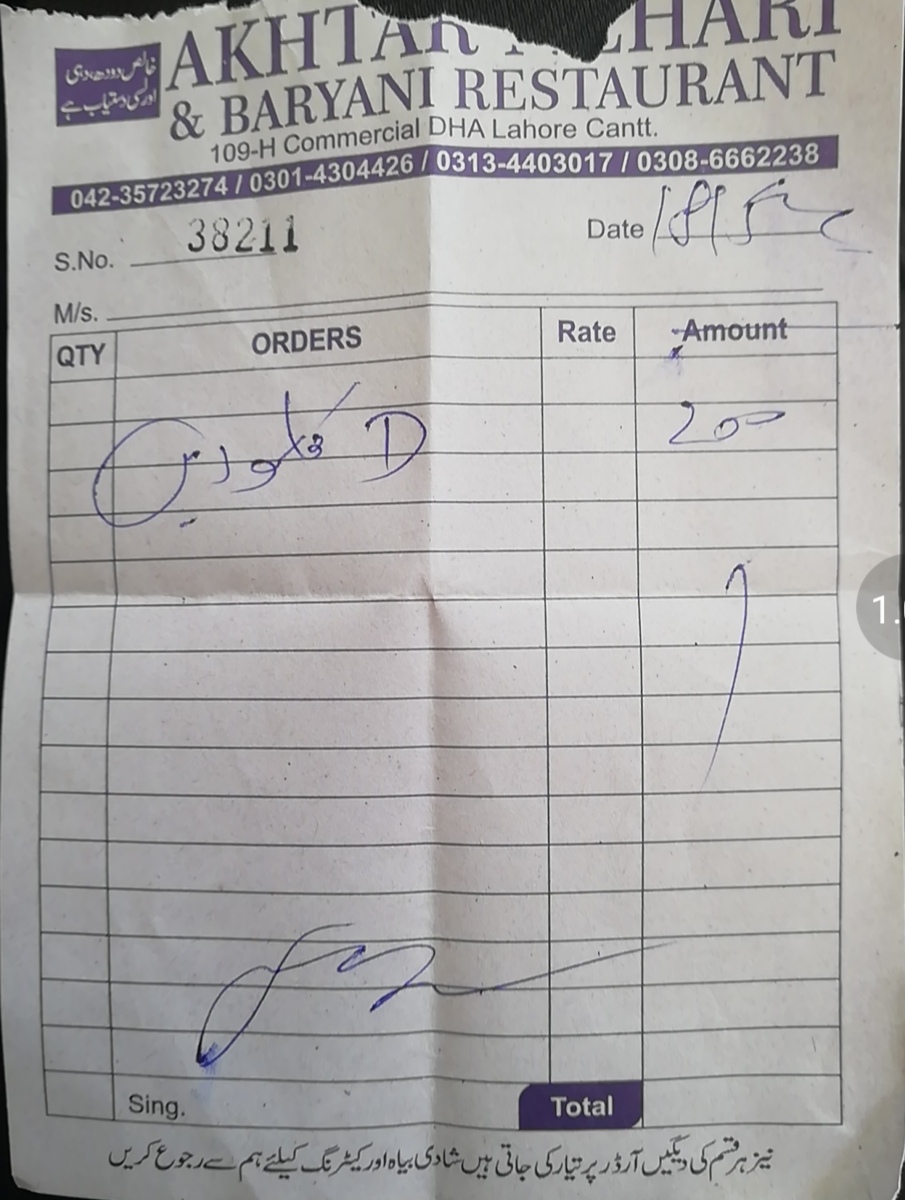 خالص دودھ دہی
اور لسی دستیاب ہے
AKHTAR HARI
& BARYANI RESTAURANT
109-H Commercial DHA Lahore Cantt.
042-35723274 / 0301-4304426 / 0313-4403017 / 0308-6662238
S.No. 38211
Date
M/s.
QTY ORDERS Rate Amount
D 200
Sing. Total
نیز ہر قسم کی دیگیں آرڈر پر تیار کی جاتی ہیں شادی بیاہ اور کیٹرنگ کیلئے ہم سے رجوع کریں
1.